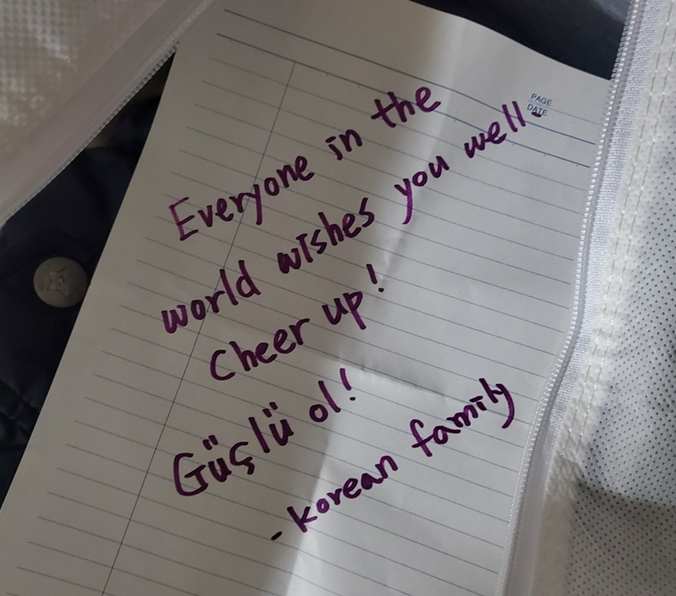 PAGE
DATE
Everyone in the
world wishes you well-
Cheer up!
Güçlü ol!
-korean family